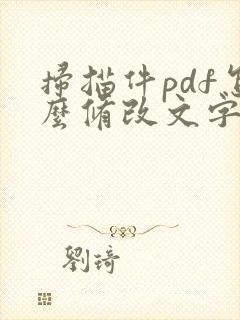 掃描件pdf怎
麼脩改文字
劉琦